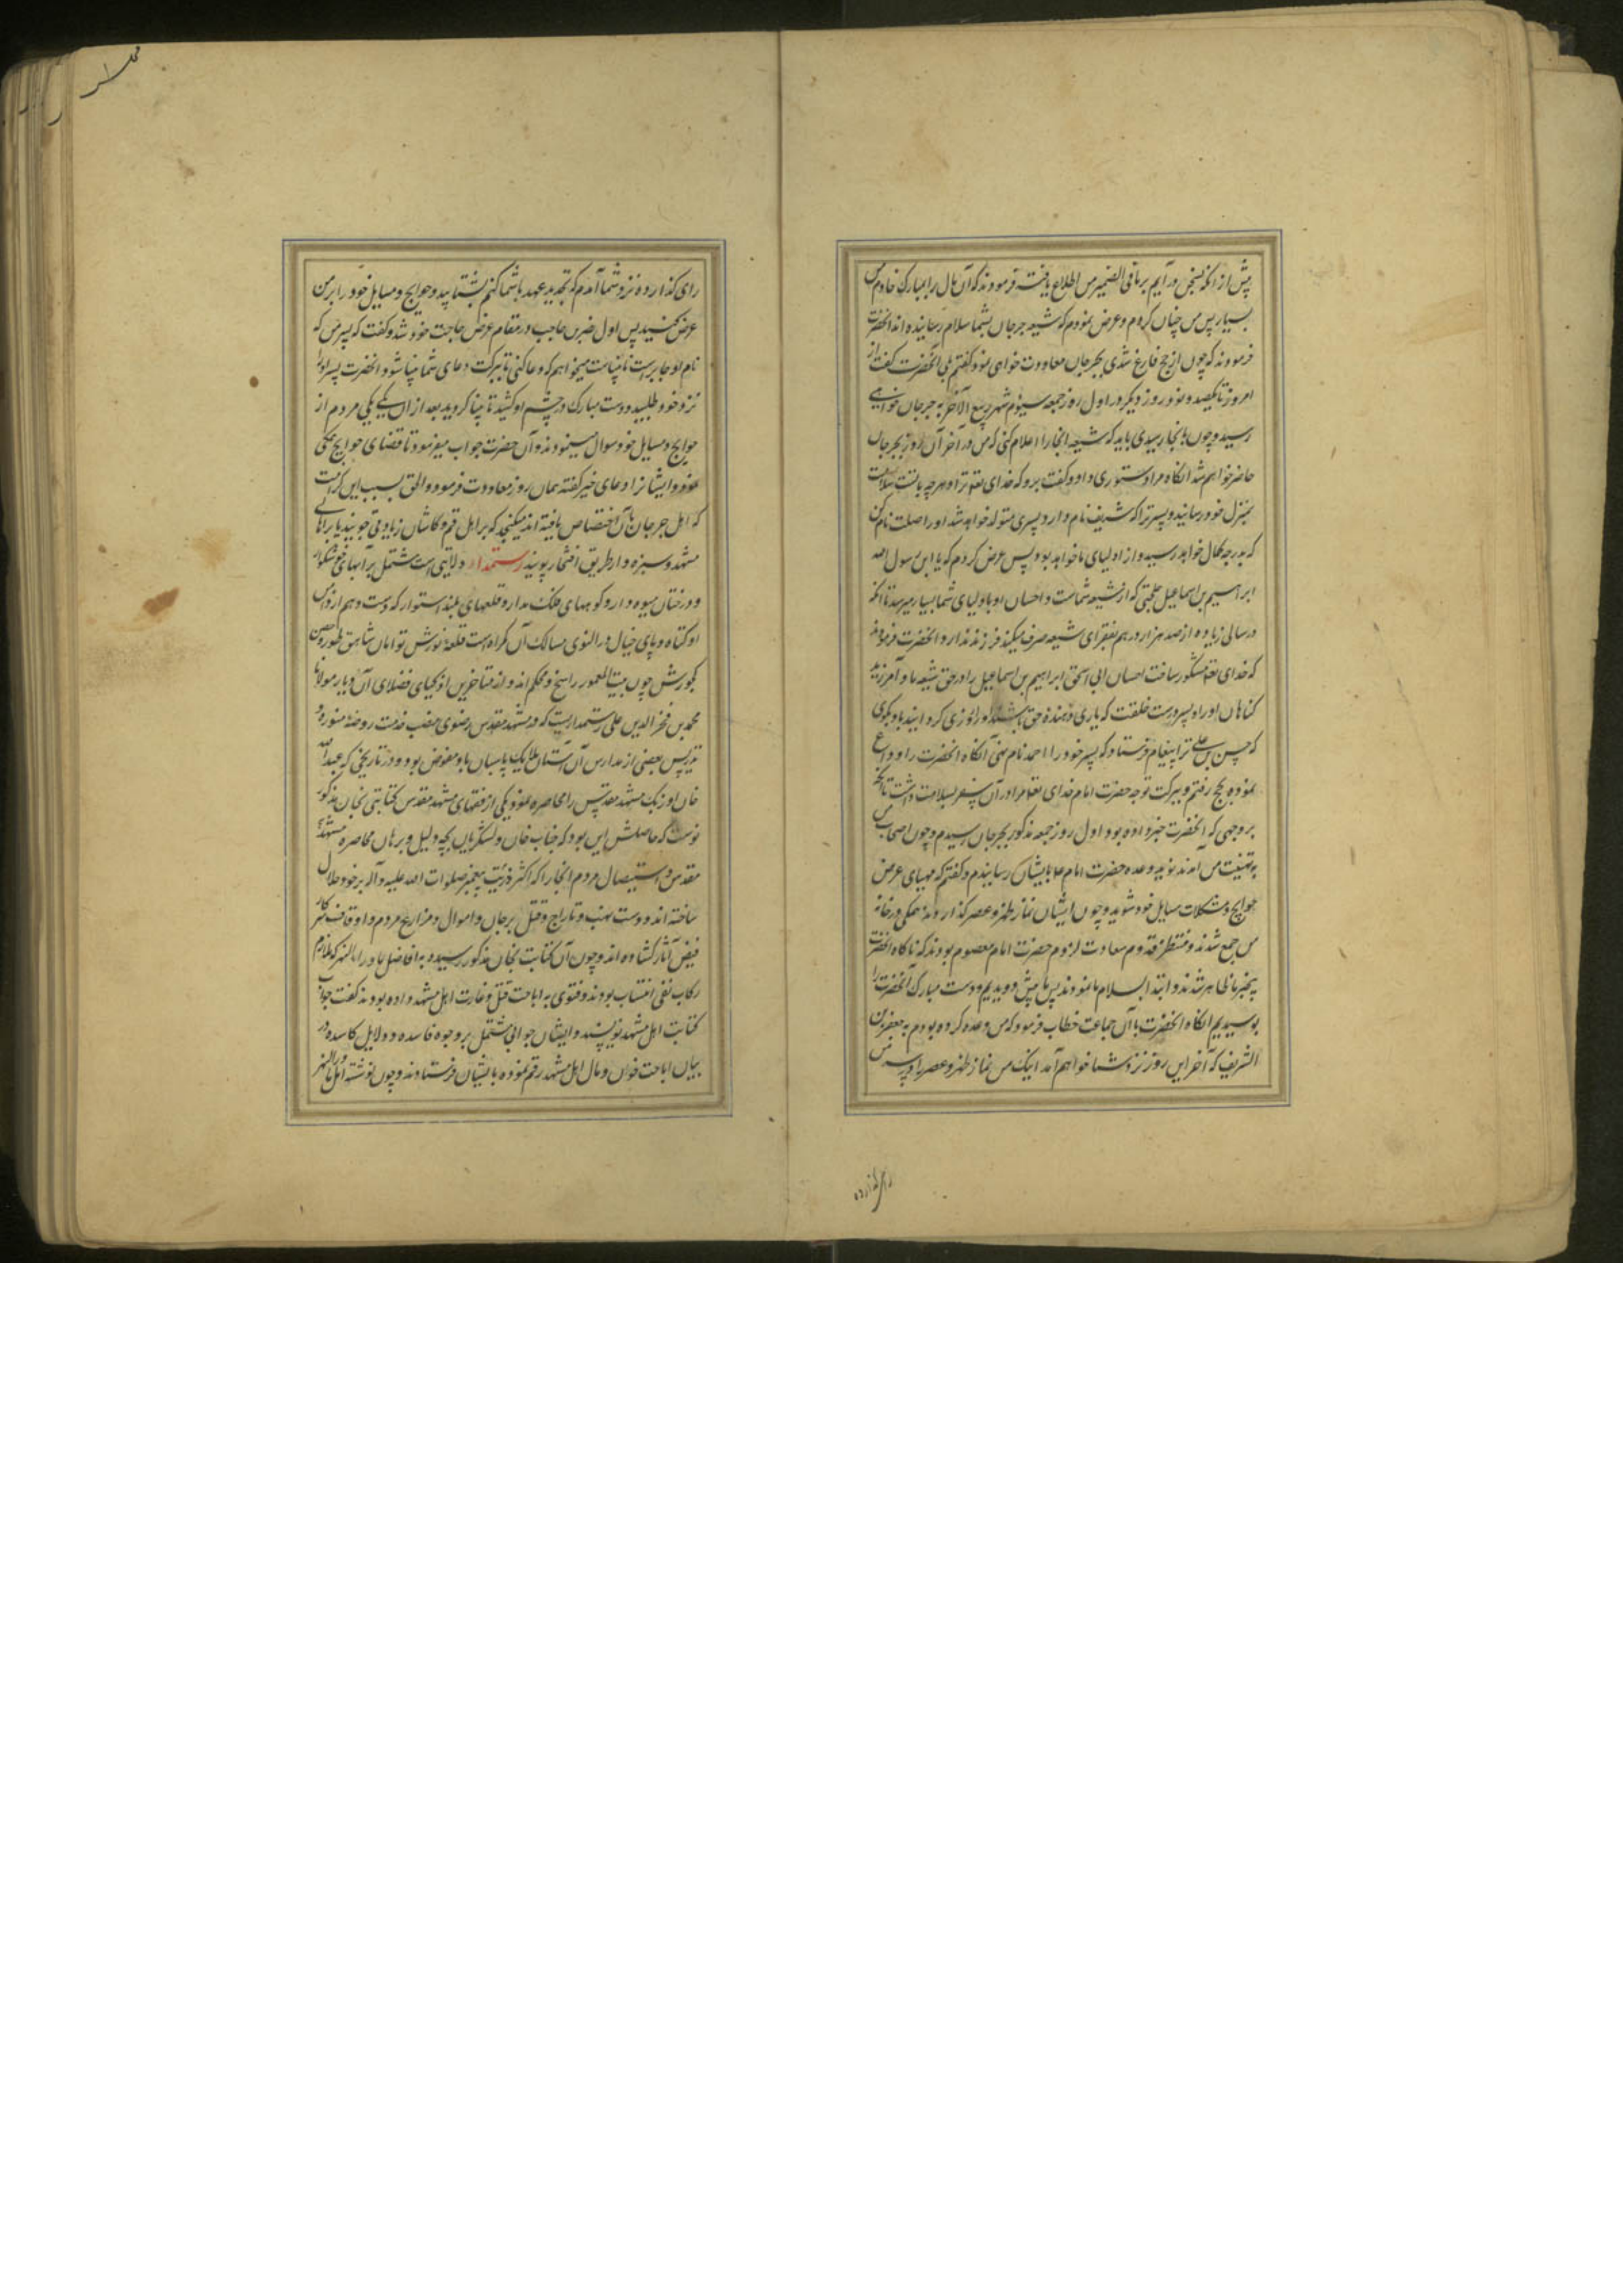 پیش از آنکه بسخن درآیم بر ما فی الضمیر من اطلاع یافته فرمودند که آن مال را بمبارک خادم من
بسپار پس من چنان کردم و عرض نمودم که شیعه جرجان بشما سلام رسانیده اند آنحضرت
فرمودند که چون از حج فارغ شدی بجرجان معاودت خواهی نمود گفتم بلی آنحضرت گفت از
امروز تا یکصد و نود روز دیگر در اول روز جمعه سیوم شهر ربیع الآخر به جرجان خواهی
رسید و چون بآنجا رسیدی باید که شیعه آنجا را اعلام کنی که من در آخر آن روز بجرجان
حاضر خواهم شد آنگاه مرا دستوری داد و گفت برو که خدای تعه ترا و هر چه با تست بسلامت
بمنزل خود رساند و پسر ترا که شریف نام دارد پسری متولد خواهد شد او را صلت نام کن
که بدرجه کمال خواهد رسید و از اولیای ما خواهد بود پس عرض کردم که یا ابن رسول الله
ابراهیم بن اسماعیل که از شیعه شماست و احسان او باولیای شما بسیار میرسد تا آنکه
در سالی زیاده از صد هزار درهم بفقرای شیعه صرف میکند فرزند ندارد آنحضرت فرمودند
که خدای تعه مشکور ساخت احسان ابی اسحق ابراهیم بن اسماعیل را در حق شیعه ما و آمرزید
گناهان او را و پسر درست خلقت که یاری دهنده حق باشد او را روزی گرداند باو بگوی
که حسن بن علی ترا پیغام فرستاد که پسر خود را احمد نام نهی آنگاه آنحضرت را وداع
نموده بحج رفتم و ببرکت توجه حضرت امام خدای تعه مرا در آن سفر بسلامت داشت تا آنکه
بر وجهی که آنحضرت خبر داده بود اول روز جمعه مذکور بجرجان رسیدم و چون اصحاب من
به تهنیت من آمدند نوید وعده حضرت امام را بایشان رسانیدم و گفتم که مهیای عرض
حوایج و مشکلات مسایل خود شوید و چون ایشان نماز ظهر و عصر گذاردند همگی در خانه
من جمع شدند و منتظر قدوم سعادت لزوم حضرت امام معصوم بودند که ناگاه آنحضرت
بیخبر ما ظاهر شدند و ابتدا بسلام ما نمودند پس ما پیش دویدیم و دست مبارک آنحضرت را
بوسیدیم آنگاه آنحضرت با آن جماعت خطاب فرمود که من وعده کرده بودم به جعفر بن
الشریف که آخر این روز نزد شما خواهم آمد اینک من نماز ظهر و عصر را در سر من
رای گذارده
رای گذارده نزد شما آمدم که تجدید عهد با شما کنم بشتابید و حوایج و مسایل خود را بر من
عرض کنید پس اول در مقام عرض حاجت خود شد و گفت که پسر من که
نام او جابرست نابیناست میخواهم که دعا کنی تا ببرکت دعای شما بینا شود آنحضرت پسر او را
نزد خود طلبید و دست مبارک در چشم او کشید تا بینا گردید بعد از آن یکی یکی مردم از
حوایج و مسایل خود سوال مینمودند و آن حضرت جواب میفرمود تا قضای حوایج همگی
نمود و ایشانرا دعای خیر گفته همان روز معاودت فرمود و الحق بسبب این کرامت
که اهل جرجان بآن اختصاص یافته اند میگنجد که بر اهل قم و کاشان زیادتی جویند یا بر اهالی
مشهد و سبزوار طریق افتخار پویند رستمدار ولایتی است مشتمل بر آبهای خوشگوار
و درختان میوه دار و کوههای فلک مدار و قلعهای بلند استوار که دست وهم از دامن
او کوتاه و پای خیال در التوی مسالک آن گمراه است قلعه نورش توامان شاهق طور و حصن
کجورش چون بیت المعمور راسخ و محکم اند و از متاخرین ازکیای فضلای آن دیار مولانا
محمد بن فخر الدین علی رستمداریست که در مشهد مقدس رضوی منصب خدمت روضه منوره و
تدریس بعضی از مدارس آن آستان ملایک پاسبان باو مفوض بود و در تاریخی که عبد الله
خان اوزبک مشهد مقدس را محاصره نمود یکی از فقهای مشهد مقدس کتابتی بخان مذکور
نوشت که حاصلش این بود که جناب خان و لشکریان بچه دلیل و برهان محاصره مشهد
مقدس و استیصال مردم آنجا را که اکثر ذریت پیغمبر صلوات الله علیه و آله بر خود حلال
ساخته اند و دست بنهب و تاراج و قتل بر جان و اموال و مزارع مردم و اوقاف سرکار
فیض آثار گشاده اند و چون آن کتابت بخان مذکور رسید به افاضل ماوراء النهر که ملازم
رکاب بودند و فتوی به اباحت قتل و غارت اهل مشهد داده بودند گفت جواب
کتابت اهل مشهد نویسند و ایشان جوابی مشتمل بر وجوه فاسده و دلایل کاسده در
بیان اباحت خون و مال اهل مشهد رقم نموده بایشان فرستادند و چون نوشته اهل ماوراء النهر